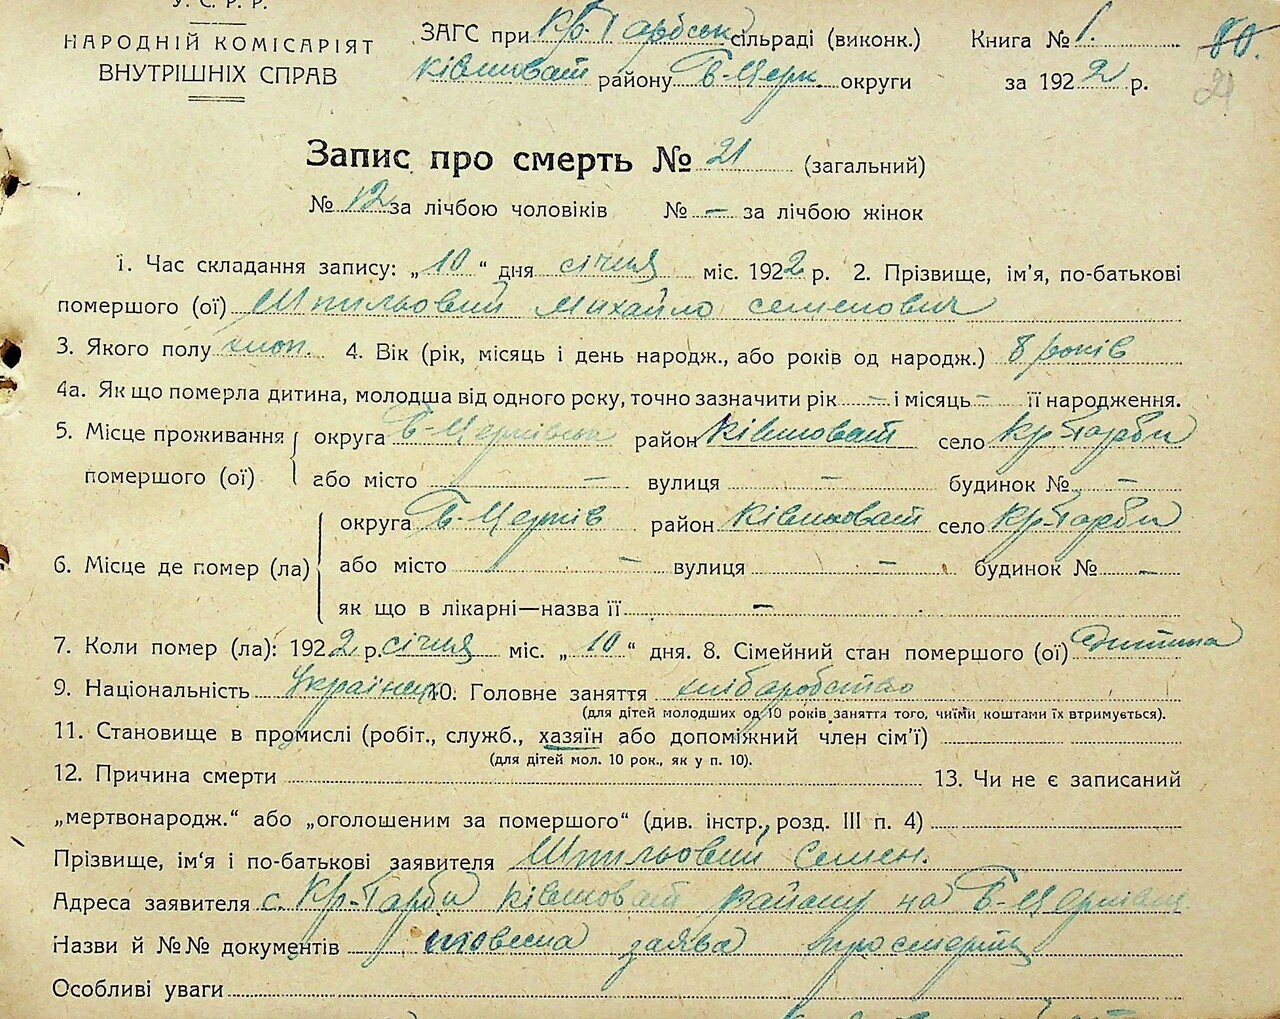 У. С. Р. Р.
НАРОДНІЙ КОМІСАРІЯТ
ВНУТРІШНІХ СПРАВ
ЗАГС при Кр. Гарбськ сільраді (виконк.)
Ківшоват району Б-Церк. округи
Книга № 1.
за 1922 р.
80.
21
Запис про смерть № 21 (загальний)
№ 12 за лічбою чоловіків № – за лічбою жінок
1. Час складання запису: „10“ дня січня міс. 1922 р. 2. Прізвище, ім'я, по-батькові
помершого (ої) Шпильовий Михайло Семенович
3. Якого полу хлоп. 4. Вік (рік, місяць і день народж., або років од народж.) 8 років
4а. Як що померла дитина, молодша від одного року, точно зазначити рік – і місяць – її народження.
5. Місце проживання округа Б-Церківськ район Ківшоват село Кр-Гарби
помершого (ої) або місто – вулиця – будинок № –
округа Б-Церків район Ківшоват село Кр-Гарби
6. Місце де помер (ла) або місто – вулиця – будинок № –
як що в лікарні—назва її –
7. Коли помер (ла): 1922 р. січня міс. „10“ дня. 8. Сімейний стан помершого (ої) Дитина
9. Національність Українець 10. Головне заняття хліборобство
(для дітей молодших од 10 років заняття того, чиїми коштами їх втримується).
11. Становище в промислі (робіт., служб., хазяїн або допоміжний член сім'ї)
(для дітей мол. 10 рок., як у п. 10).
12. Причина смерти 13. Чи не є записаний
„мертвонародж.“ або „оголошеним за помершого“ (див. інстр., розд. III п. 4)
Прізвище, ім'я і по-батькові заявителя Шпильовий Семен.
Адреса заявителя с. Кр-Гарби Ківшоват району на Б-Церківщ
Назви й №№ документів словесна заява про смерть
Особливі уваги